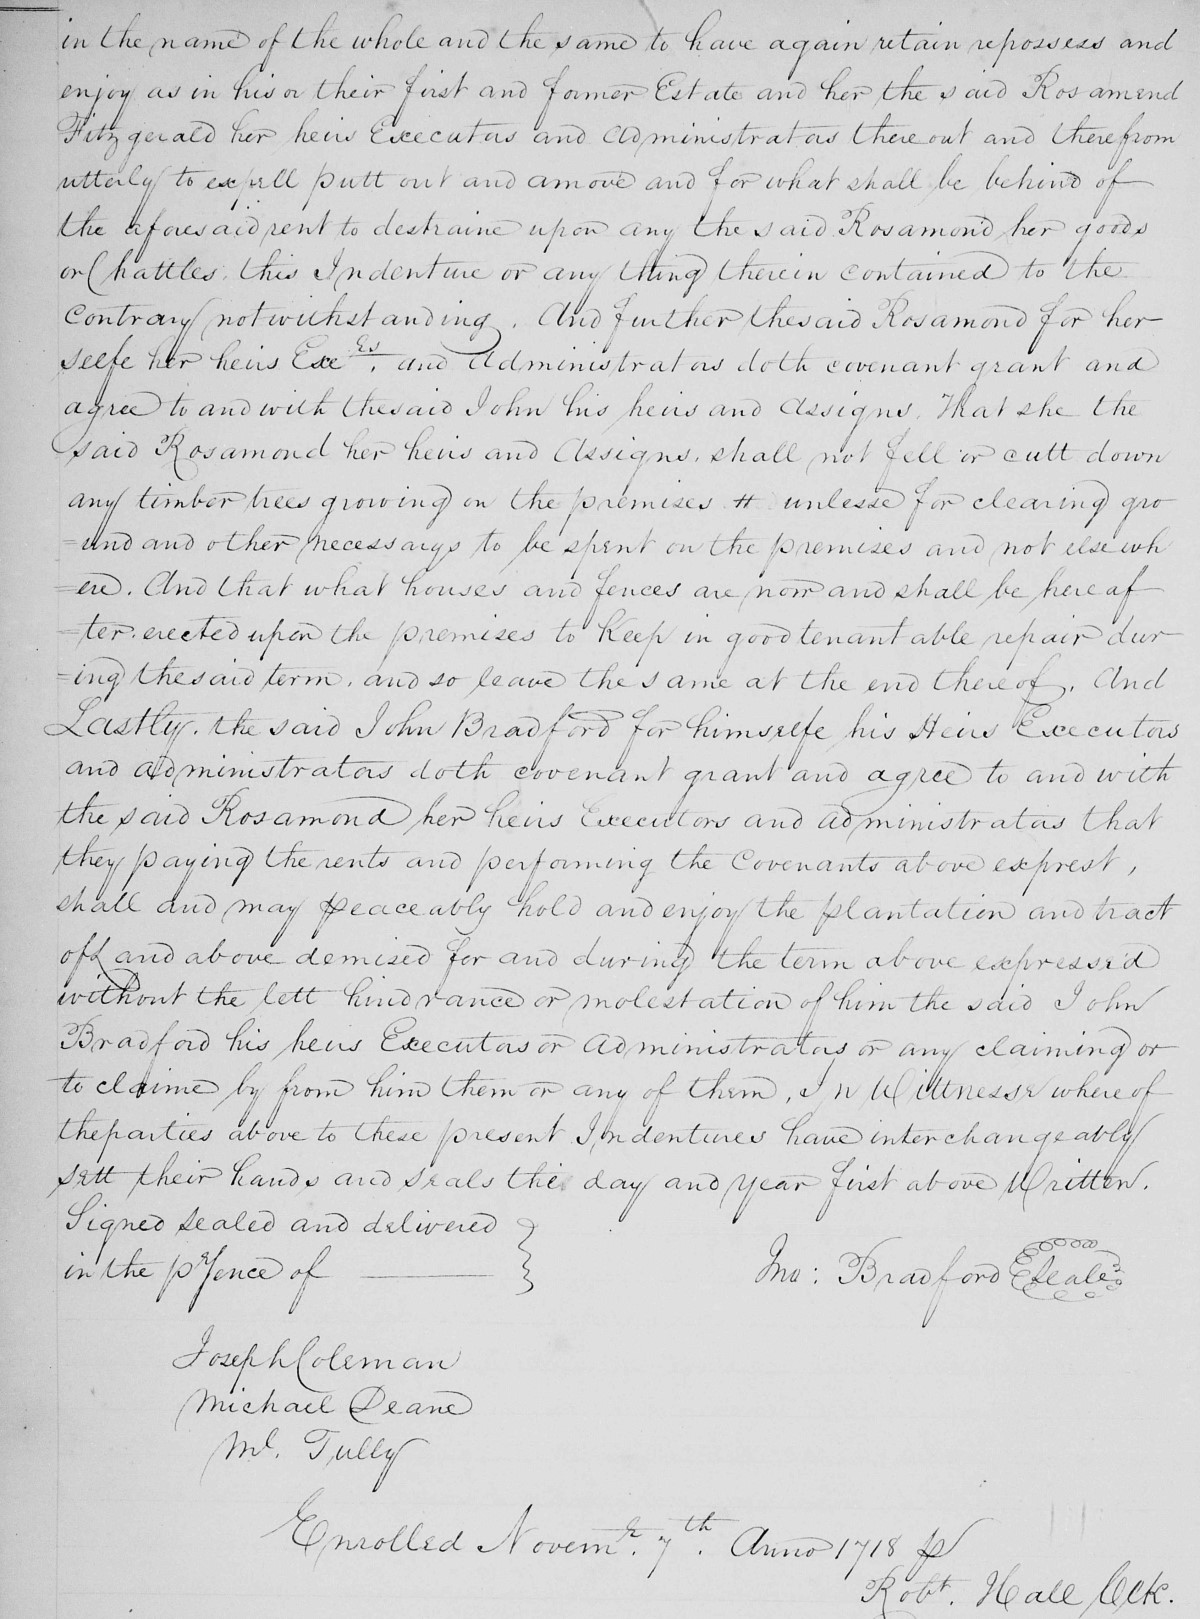 in the name of the whole and the same to have again retain repossess and
enjoy as in his or their first and former Estate and her the said Rosamend
Fitzgerald her heirs Executors and administrators thereout and therefrom
utterly to expell putt out and amove and for what shall be behind of
the aforesaid rent to destraine upon any the said Rosamond her goods
or Chattles, this Indenture or any thing therein contained to the
contrary notwithstanding. And further the said Rosamond for her
selfe her heirs Exe.rs and administrators doth covenant grant and
agree to and with the said John his heirs and assigns. That she the
said Rosamond her heirs and Assigns, shall not fell or cutt down
any timber trees growing on the premises # unlesse for clearing gro
=und and other necessarys to be spent on the premises and not elsewh
=ere. And that what houses and fences are now and shall be hereaf
=ter erected upon the premises to keep in good tenantable repair dur-
=ing the said term, and so leave the same at the end thereof. And
Lastly. the said John Bradford for himselfe his Heirs Executors
and administrators doth covenant grant and agree to and with
the said Rosamond her heirs Executors and administrators that
they paying the rents and performing the Covenants above exprest,
shall and may peaceably hold and enjoy the plantation and tract
of Land above demised for and during the term above express'd
without the lett hindrance or molestation of him the said John
Bradford his heirs Executors or administrators or any claiming or
to claime by from him them or any of them, In Wittnesse whereof
the parties above to these present Indentures have interchangeably
sett their hands and seals the day and year first above Written.
Signed sealed and delivered
in the prsence of ———
Jno: Bradford Seale
Joseph Coleman
Michael Deane
Ml. Tully
Enrolled Novemr. 7th. Anno 1718 p
Robt. Hall Clk.